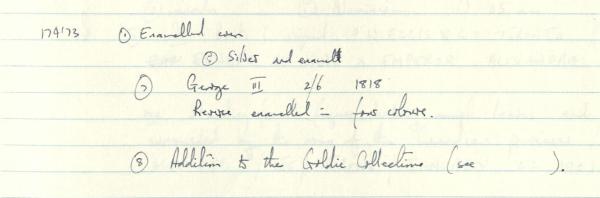 174'73 ① Enamelled coin
② Silver and enamel
⑦ George III 2/6 1818
Reverse enamelled in four colours.
⑧ Addition to the Goldie Collection (see ).